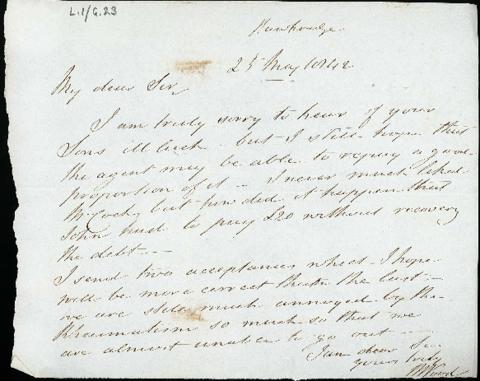 L.1/G.23
25 May 1842
My dear Sir,
I am truly sorry to hear of your
Sons ill luck - but I still hope that
the agent may be able to repay a good
proportion of it - I never much liked
but how did it happen that
John had to pay £20 without recovery
the debt -
I send two acceptances which I hope
will be more correct than the last -
we are still much annoyed by the
Rheumatism so much so that we
are almost unable to go out -
I am dear Sir
yours truly
Wood